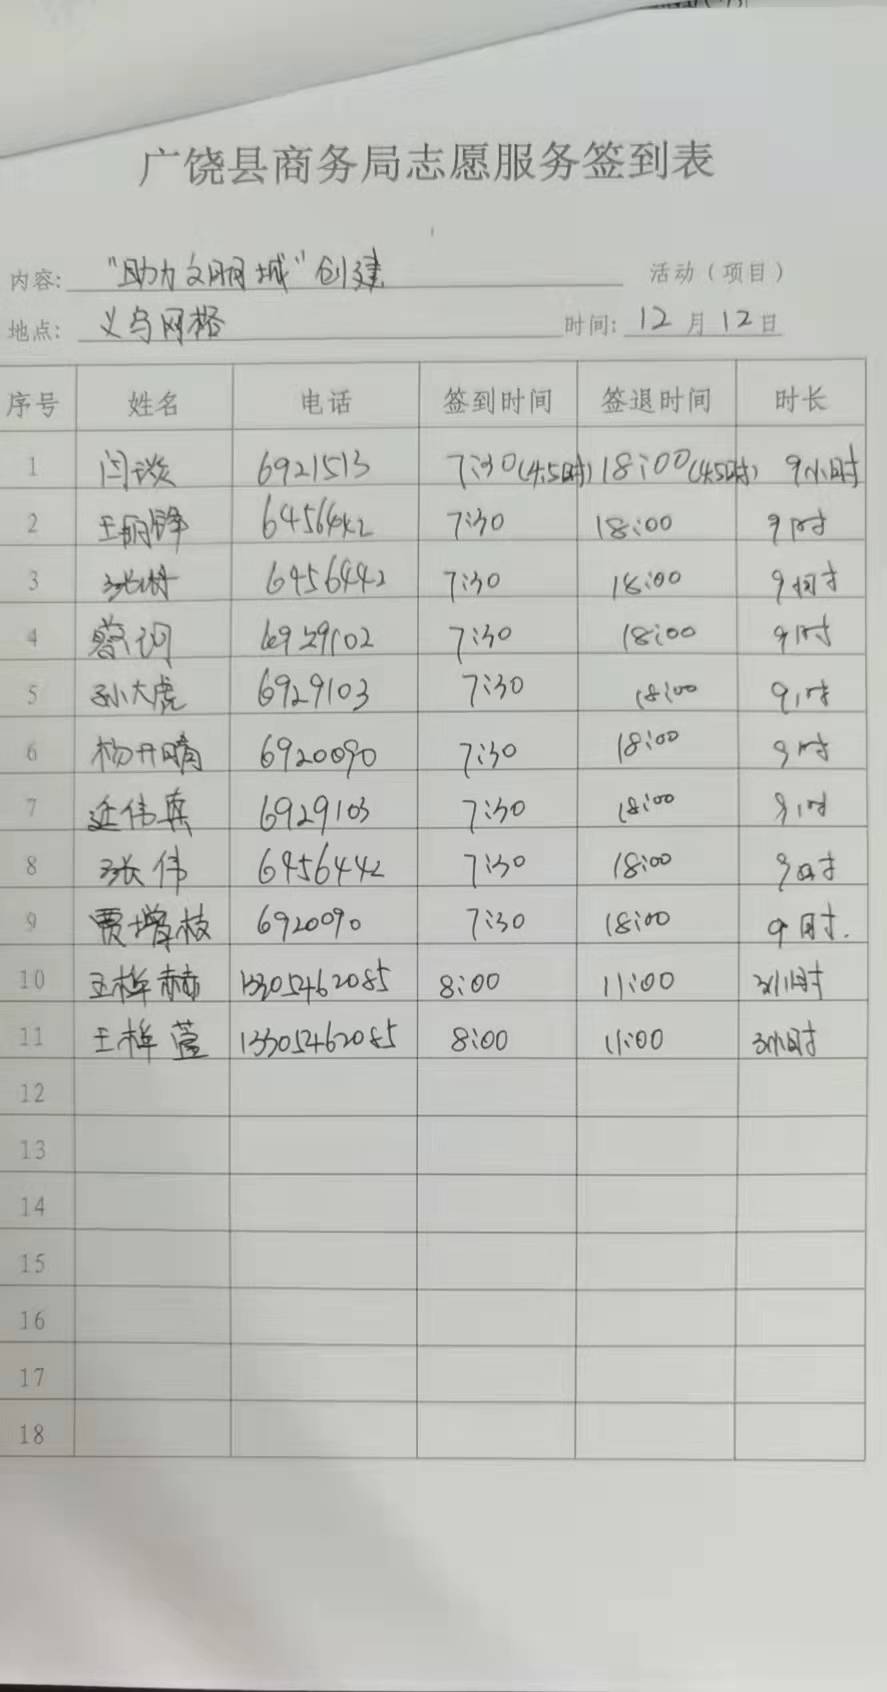 广饶县商务局志愿服务签到表
内容: "助力文明城"创建 活动（项目）
地点: 义乌网格 时间: 12月12日
序号 姓名 电话 签到时间 签退时间 时长
1 闫谈 6921513 7:30(4.5时) 18:00(4.5时) 9小时
2 王丽锋 6456442 7:30 18:00 9时
3 6456442 7:30 18:00 9时
4 蔡词 6929102 7:30 18:00 9时
5 孙大虎 6929103 7:30 18:00 9时
6 杨开晴 6920090 7:30 18:00 9时
7 延伟真 6929103 7:30 18:00 9时
8 张伟 6456442 7:30 18:00 9时
9 贾增枝 6920090 7:30 18:00 9时.
10 王梓赫 13305462085 8:00 11:00 3小时
11 王梓萱 13305462085 8:00 11:00 3小时
12
13
14
15
16
17
18